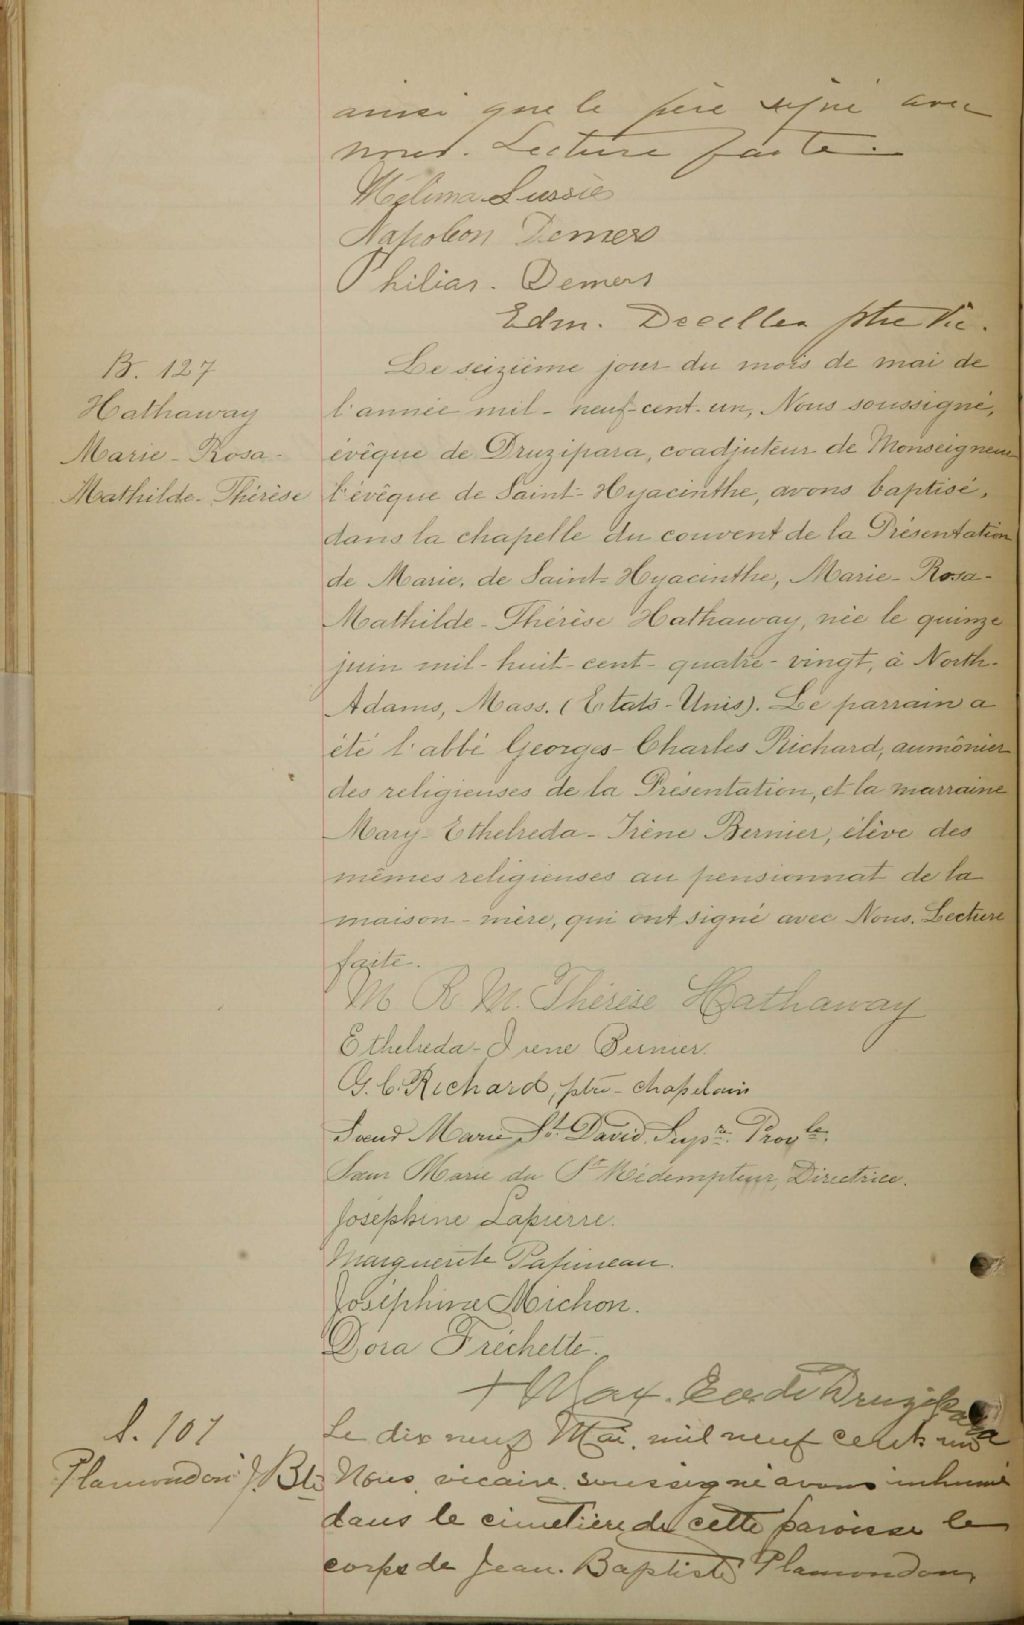 ainsi que le père signé avec
nous. Lecture faite.
Mélima Lussier
Napoléon Demers
Philias. Demers
Edm. Decelles ptre Vic.
B. 127
Hathaway
Marie-Rosa-
Mathilde-Thérèse
Le seizième jour du mois de mai de
l'année mil-neuf-cent-un, Nous soussigné,
évêque de Druzipara, coadjuteur de Monseigneur
l'évêque de Saint-Hyacinthe, avons baptisé,
dans la chapelle du couvent de la Présentation
de Marie, de Saint-Hyacinthe, Marie-Rosa-
Mathilde-Thérèse Hathaway, née le quinze
juin mil-huit-cent-quatre-vingt, à North-
Adams, Mass. (Etats-Unis). Le parrain a
été l'abbé Georges-Charles Richard, aumônier
des religieuses de la Présentation, et la marraine
Mary-Ethelreda-Irène Bernier, élève des
mêmes religieuses au pensionnat de la
maison-mère, qui ont signé avec Nous. Lecture
faite.
M R M. Thérèse Hathaway
Ethelreda-Irene Bernier.
G. C. Richard, ptre-chapelain
Soeur Marie St. David, Supre. Provle.
Soeur Marie du St Rédempteur, Directrice.
Joséphine Lapierre.
Marguerite Papineau.
Joséphine Michon.
Dora Fréchette.
+ Max. Ev. de Druzipara
S. 107
Plamondon J. Bte
Le dix neuf Mai, mil neuf cent un
Nous, vicaire soussigné avons inhumé
dans le cimetière de cette paroisse le
corps de Jean-Baptiste Plamondon,